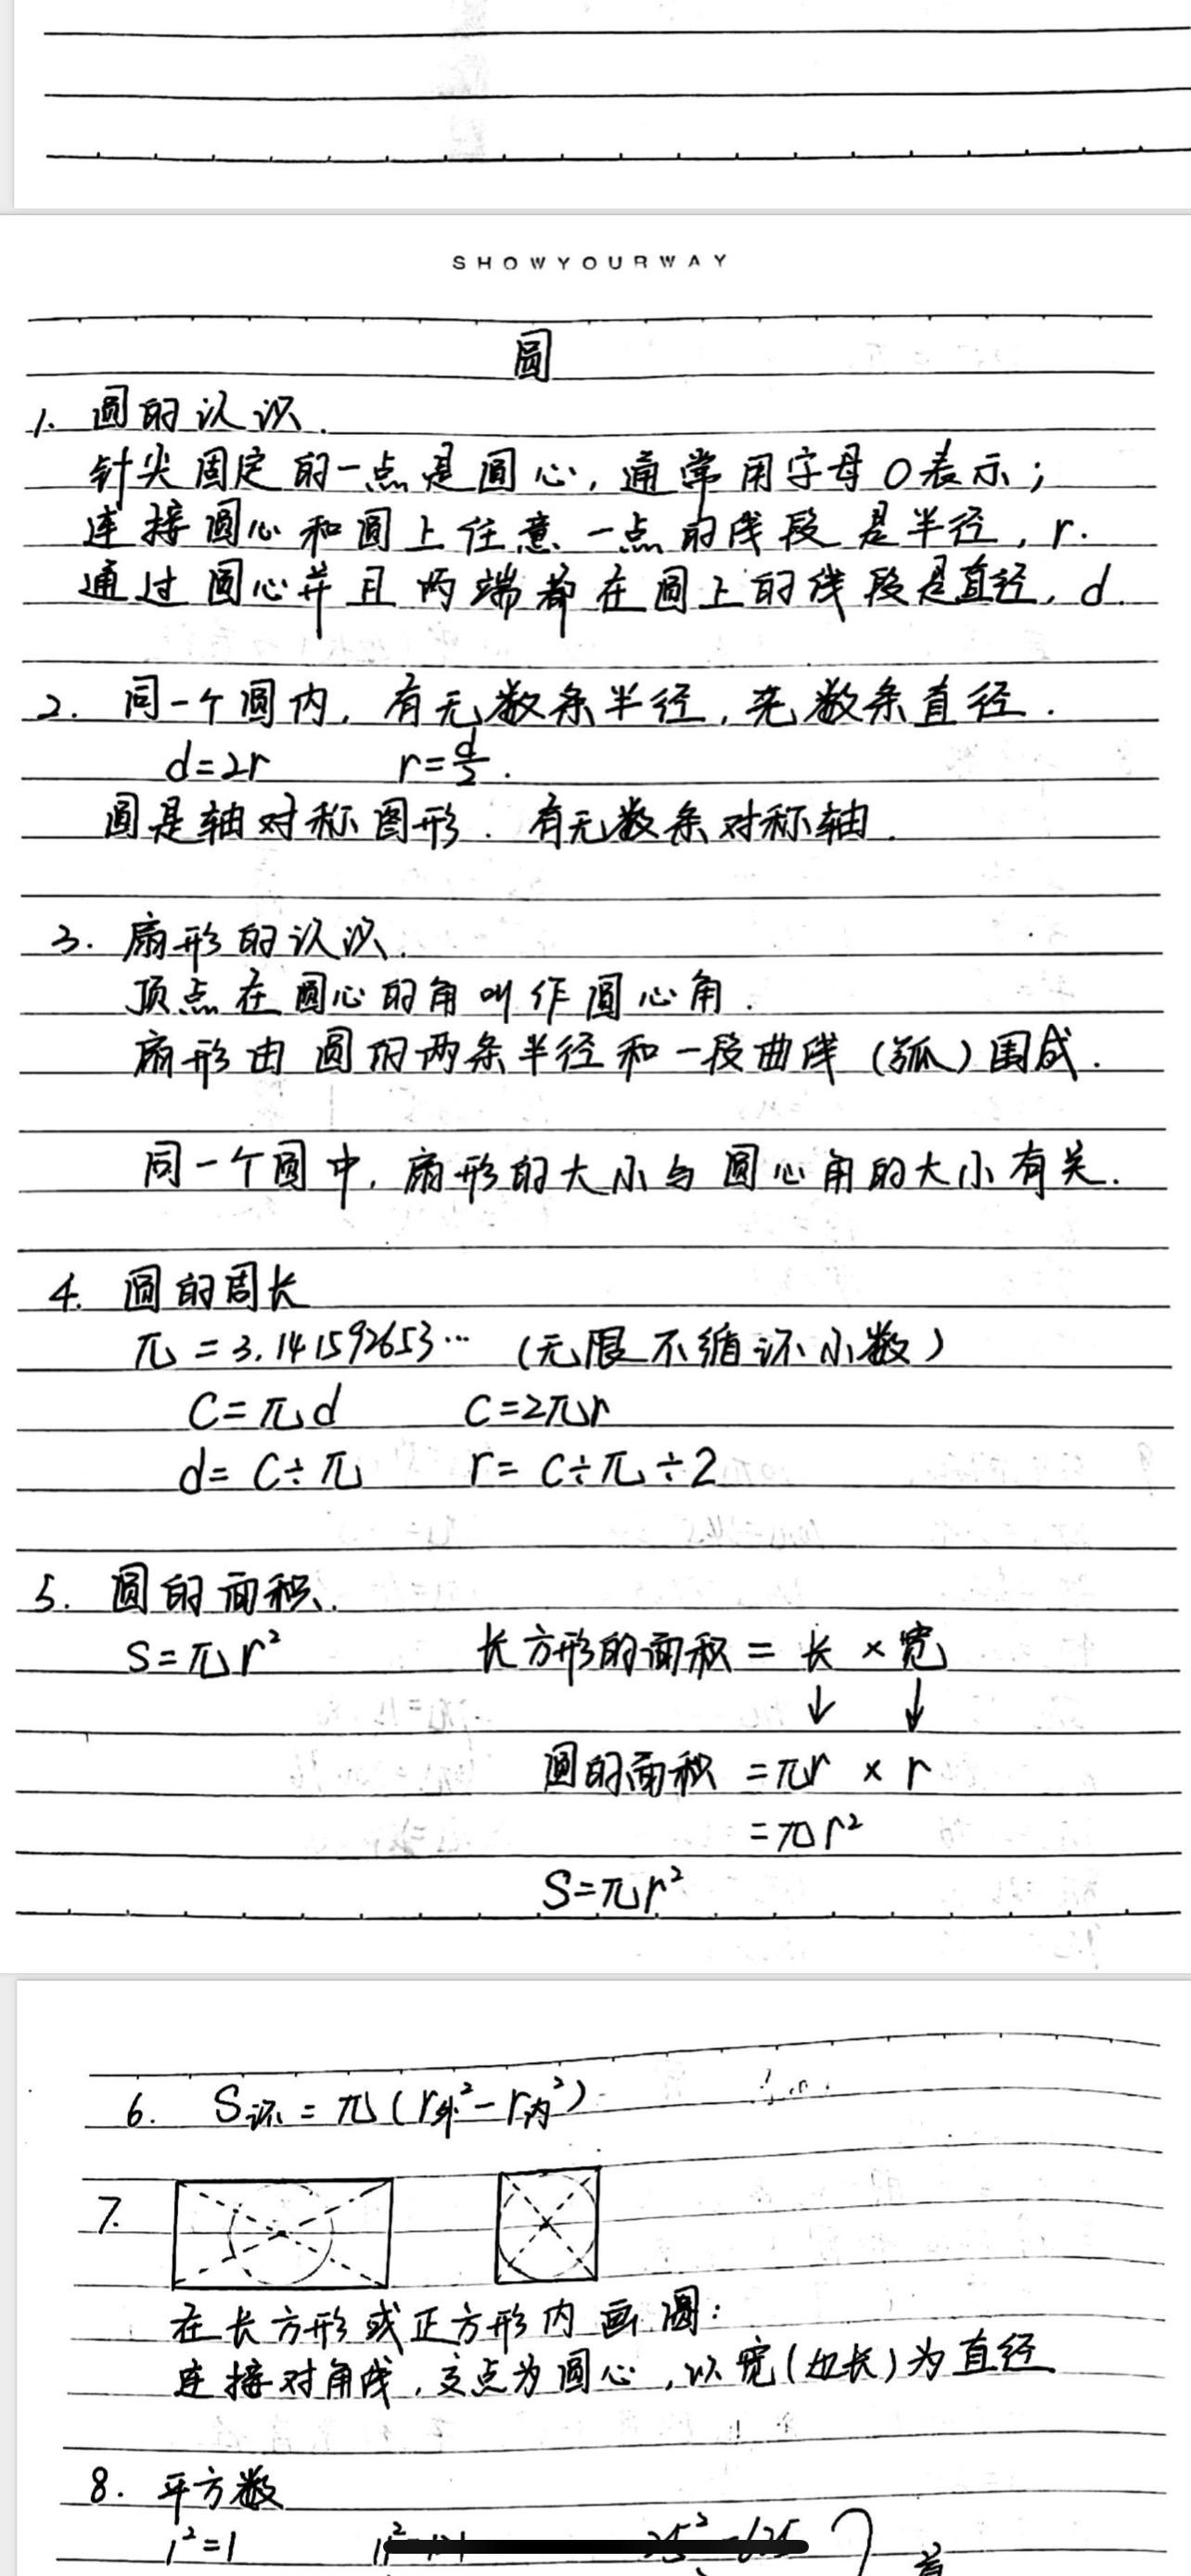 SHOWYOURWAY
圆
1. 圆的认识.
针尖固定的一点是圆心, 通常用字母O表示;
连接圆心和圆上任意一点的线段是半径, r.
通过圆心并且两端都在圆上的线段是直径, d.
2. 同一个圆内, 有无数条半径, 无数条直径.
d=2r r=d/2.
圆是轴对称图形. 有无数条对称轴.
3. 扇形的认识.
顶点在圆心的角叫作圆心角.
扇形由圆的两条半径和一段曲线(弧)围成.
同一个圆中, 扇形的大小与圆心角的大小有关.
4. 圆的周长
π=3.141592653… (无限不循环小数)
C=πd C=2πr
d=C÷π r=C÷π÷2
5. 圆的面积.
S=πr² 长方形的面积=长×宽
↓ ↓
圆的面积=πr×r
=πr²
S=πr²
6. S环=π(r外²-r内²)
7.
在长方形或正方形内画圆:
连接对角线, 交点为圆心, 以宽(边长)为直径
8. 平方数
1²=1